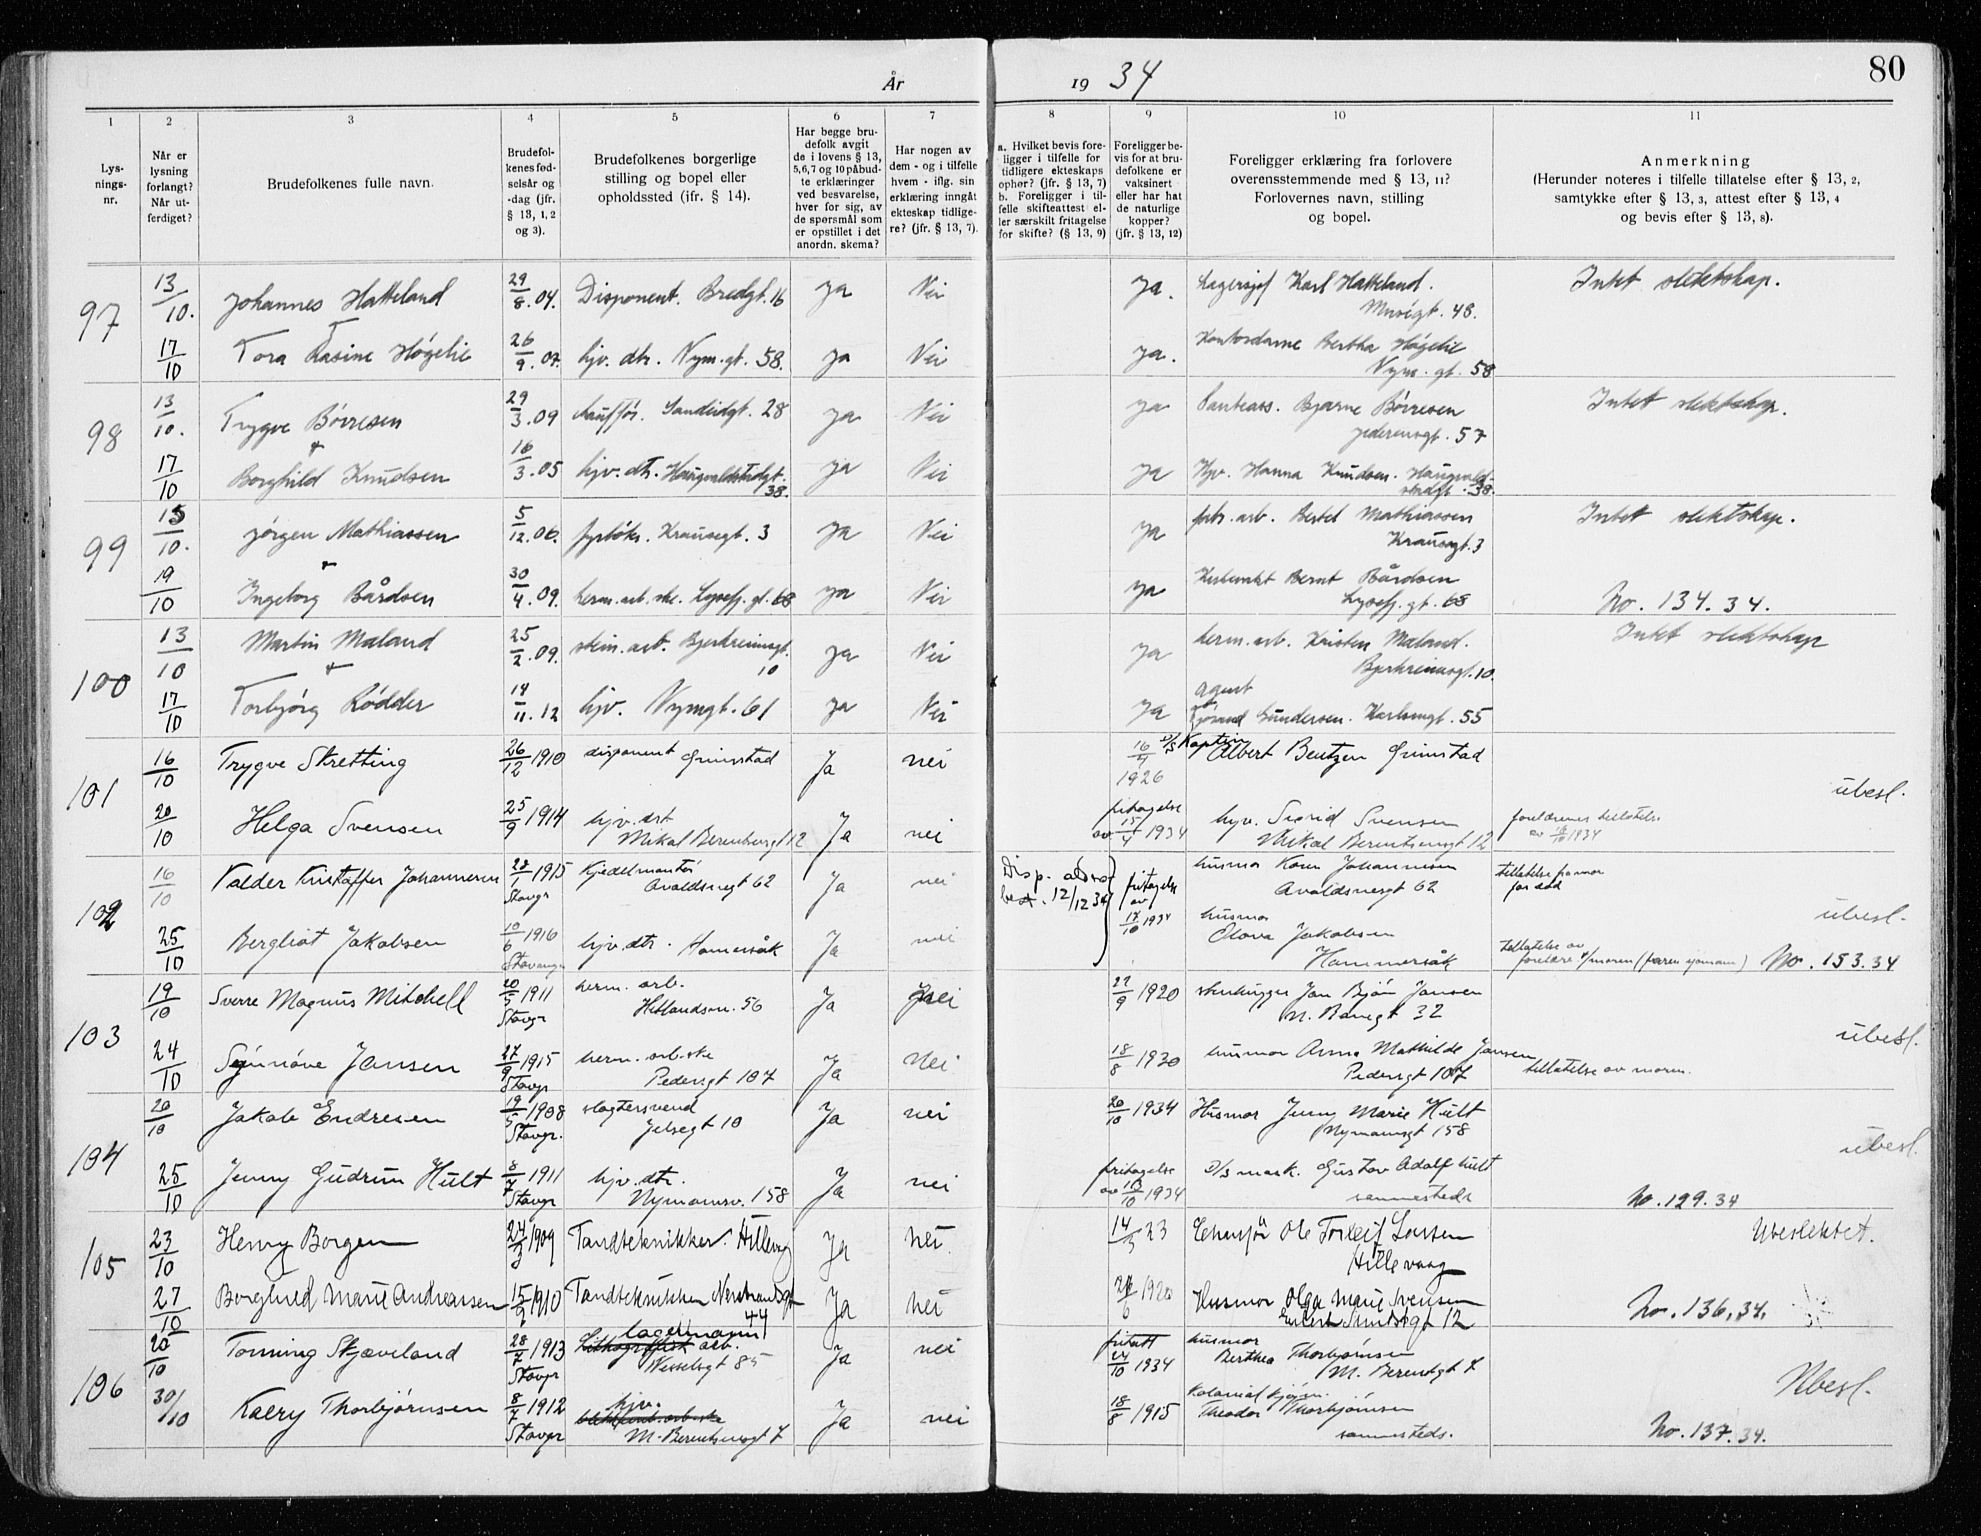 År 1934
80
1
2
3
4
5
6
7
8
9
10
11
Lys-
nings-
nr.
Når er
lysning
forlangt?
Når ut-
ferdiget?
Brudefolkenes fulle navn.
Brudefol-
kenes fød-
selsår og
-dag (jfr.
§ 13, 1, 2
og 3).
Brudefolkenes borgerlige
stilling og bopel eller
opholdssted (ifr. § 14).
Har begge bru-
defolk avgit
de i lovens § 13,
5,6,7 og 10 påbud-
te erklæringer
ved besvarelse,
hver for sig, av
de spørsmål som
er opstillet i det
anordn. skema?
Har nogen av
dem - og i tilfelle
hvem - iflg. sin
erklæring inngåt
ekteskap tidlige-
re? (jfr. § 13, 7).
a. Hvilket bevis fore-
ligger i tilfelle for
tidligere ekteskaps
ophør? (jfr. § 13, 7)
b. Foreligger i til-
felle skifteattest el-
ler særskilt fritagelse
for skifte? (§ 13, 9)
Foreligger be-
vis for at bru-
defolkene er
vaksinert
eller har hat
de naturlige
kopper?
(jfr. § 13, 12)
Foreligger erklæring fra forlovere
overensstemmende med § 13, 11?
Forlovernes navn, stilling
og bopel.
Anmerkning
(Herunder noteres i tilfelle tillatelse efter § 13, 2,
samtykke efter § 13, 3, attest efter § 13, 4
og bevis efter § 13, 8).
97
13/10. Johannes Hatteland 29/8.04. Disponent. Bredgt. 16 ja Nei ja. Lagersjef Karl Hatteland.
Musegt. 48.
Intet slektskap.
17/10 Tora Rasine Høgelie 26/9.07. hjv. dtr. Nym. gt. 58. ja Nei ja. Kontordame Bertha Høgelie
Nym. gt. 58
98
13/10. Trygve Børresen 29/3.09 chauffør. Sandeidgt. 28 ja Nei ja Bjarne Børresen
Jederensgt. 57
Intet slektskap.
+
17/10 Borghild Knudsen 16/3.05 hjv. dtr. Haugvaldstadgt.
38.
ja Nei ja Hjv. Hanna Knudsen. Haugvald-
stadgt. 38.
99
15/10. Jørgen Mathiassen 5/12.06. fyrbøter. Krausegt. 3 ja Nei ja fabr. arb. Bertel Mathiassen
Krausegt. 3
Intet slektskap.
+
19/10 Ingeborg Bårdsen 30/4.09. herm. arb. ske. Lysefj. gt. 68 ja Nei ja Bernt Bårdsen
Lysefj. gt. 68
No. 134. 34.
100
13/10 Martin Maland 25/2.09. stein. arb. Bjerkreimsgt.
10
ja Nei ja herm. arb. Kristen Maland.
Bjerkreimsgt. 10.
Intet slektskap
+
17/10 Torbjørg Rødder 14/11.12 hjv. Nymgt. 61 ja Nei ja agent
Gundersen. Karlsmgt. 55
101
16/10 Trygve Stretting 26/12 1910 disponent Grimstad Ja nei 16/4
1926
D/S Kaptein
Albert Bentzen Grimstad
ubesl.
20/10 Helga Svensen 25/9 1914 hjv. dtr
Mikal Berentsensgt 12
Ja nei fritagelse
av 15/4 1934
hjv. Sigrid Svensen
Mikal Berentsensgt 12
foreldrenes tillatelse
av 16/10 1934
102
16/10 Valder Kristoffer Johannesen 28/1 1915
Stavgr
Kjedelmontør
Avaldsnesgt 62
Ja nei
Disp. alder
best. 12/12 34
fritagelse
av
17/10 1934
husmor Karen Johannesen
Avaldsnesgt 62
tillatelse fra mor
far død
ubesl.
25/10 Bergliot Jakobsen 10/6 1916
Stavanger
hjv. dtr. Hommersåk Ja nei
husmor
Olava Jakobsen
Hommersåk
tillatelse av
foreldre v/moren (faren sjømann) No. 153. 34
103
19/10 Sverre Magnus Mitchell 20/5 1911
Stavgr
herm. arb.
Hetlandsm. 56
Ja nei 27/9 1920 stenhugger Jan Bjørn Jansen
N. Banegt 32
ubesl.
24/10 Synnøve Jansen 27/9 1915
Stavgr
herm. arbske
Pedersgt 107
Ja Nei 18/8 1930 husmor Anna Mathilde Jansen
Pedersgt 107
tillatelse av moren.
104
20/10 Jakob Endresen 19/5 1908
Stavgr.
slagtersvend
Jelsegt 10
Ja nei 20/10 1934 Husmor Jenny Marie Hult
Nymannsgt 158
ubesl.
25/10 Jenny Gudrun Hult 8/7 1911
Stavgr
hjv. dtr.
Nymannsv. 158
Ja nei fritagelse
av 18/10 1934
D/S mask. Gustav Adolf Hult
sammesteds
No. 129. 34
105
23/10 Henry Borgen 24/3 1909 Tandtekniker Hillevåg Ja Nei 14/5 23 Ole Torleif Larsen
Hillevaag
Ubeslektet.
27/10 Borghild Marie Andreassen 15/9 1910 Tandtekniker Nerstrandsgt
44
Ja Nei 26/6 1920 Husmor Olga Marie Svensen
Sundtsgt 12
No. 136. 34.
106
20/10 Tonning Skjæveland 28/7 1913
Stavgr
lagermann
Lithografisk arb.
Wesselsgt 85
Ja nei fritatt
24/10 1934
husmor
Berthea Thorbjørnsen
M. Berentsgt 7
Ubesl.
30/10 Kaery Thorbjørnsen 8/7 1912
Stavgr
hjv.
M. Berentsensgt 7
Ja nei 18/8 1915 Kolonial kjøpm.
Theodor Thorbjørnsen
sammesteds.
No. 137. 34.